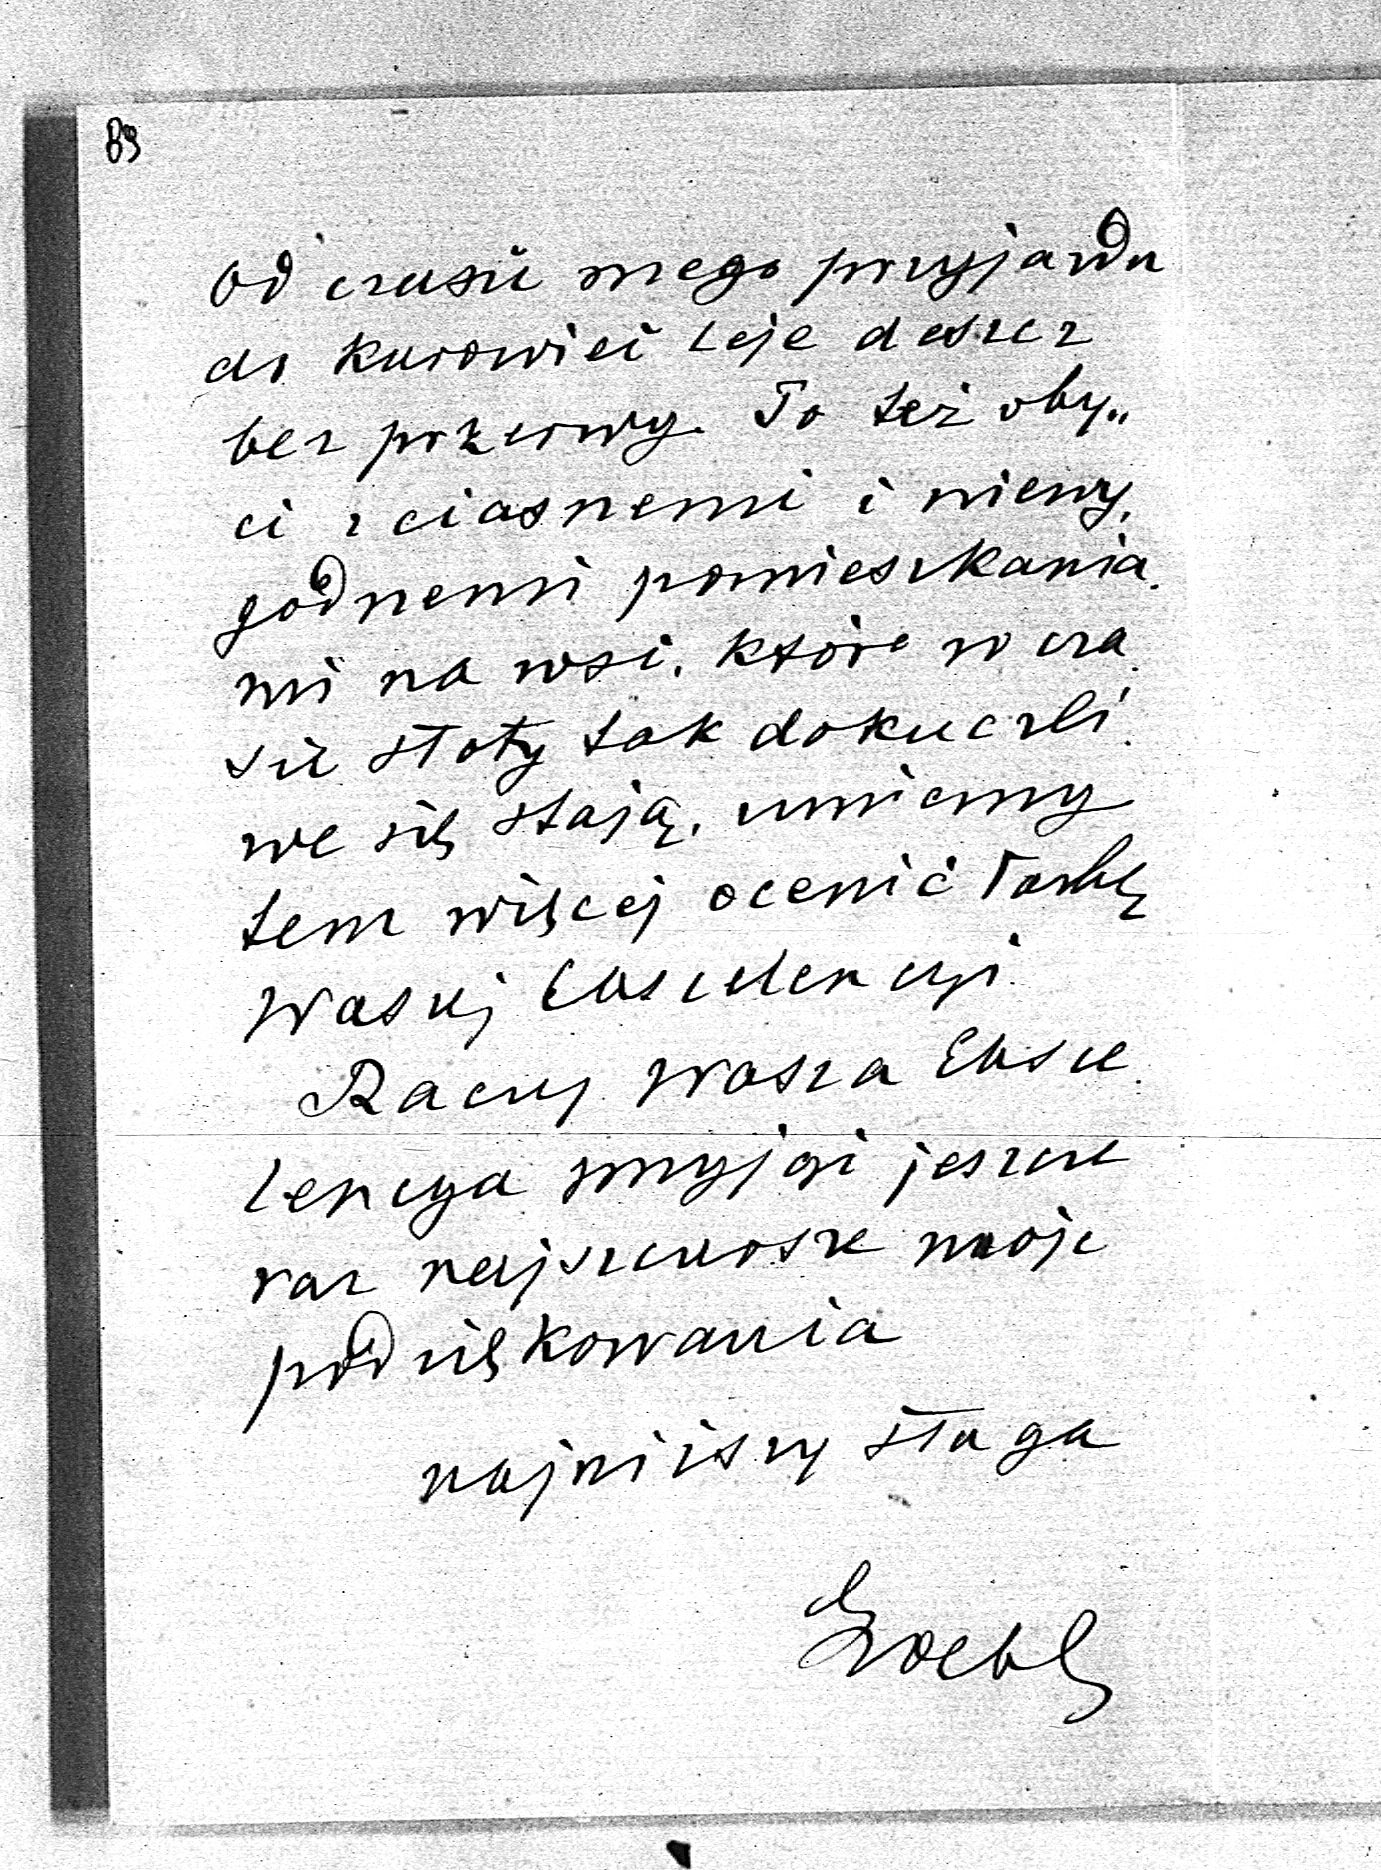 89
Od czasu mego przyjazdu
do Kurowiec leje deszcz
bez przerwy. To też oby„
ci z ciasnemi i niewy,
godnemi pomieszkania.
mi na wsi, które w cza.
sie słoty tak dokuczli.
we się stają, umiemy
tem więcej ocenić łaskę
Waszej Ekscelencyi.
Raczy Wasza Eksce.
lencya przyjąć jeszcze
raz najszczersze moje
podziękowania
najniższy sługa